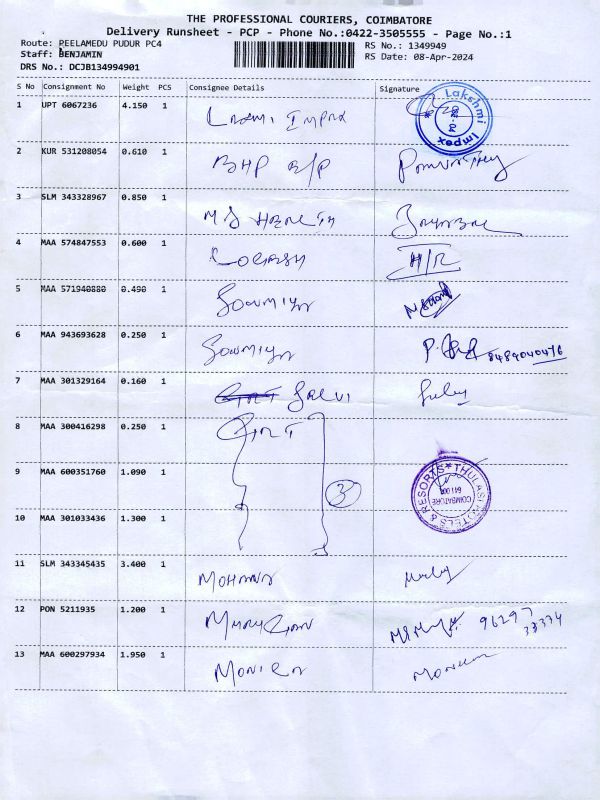 THE PROFESSIONAL COURIERS, COIMBATORE
Delivery Runsheet - PCP - Phone No.:0422-3505555 - Page No.:1
Route: PEELAMEDU PUDUR PC4 RS No.: 1349949
Staff: BENJAMIN RS Date: 08-Apr-2024
DRS No.: DCJB134994901
S No Consignment No Weight PCS Consignee Details Signature
1 UPT 6067236 4.150 1 Laxmi Impex Lakshmi Impex
2 KUR 531208054 0.610 1 BHP
3 SLM 343328967 0.850 1 M S
4 MAA 574847553 0.600 1 H/R
5 MAA 571940880 0.490 1 Sowmiya
6 MAA 943693628 0.250 1 Sowmiya 8489040476
7 MAA 301329164 0.160 1 GRT Selvi
8 MAA 300416298 0.250 1 GRT
9 MAA 600351760 1.090 1 3 THULASI HOTELS & RESORTS COIMBATORE
10 MAA 301033436 1.300 1
11 SLM 343345435 3.400 1
12 PON 5211935 1.200 1 Murugan 96297 33334
13 MAA 600297934 1.950 1 Monica